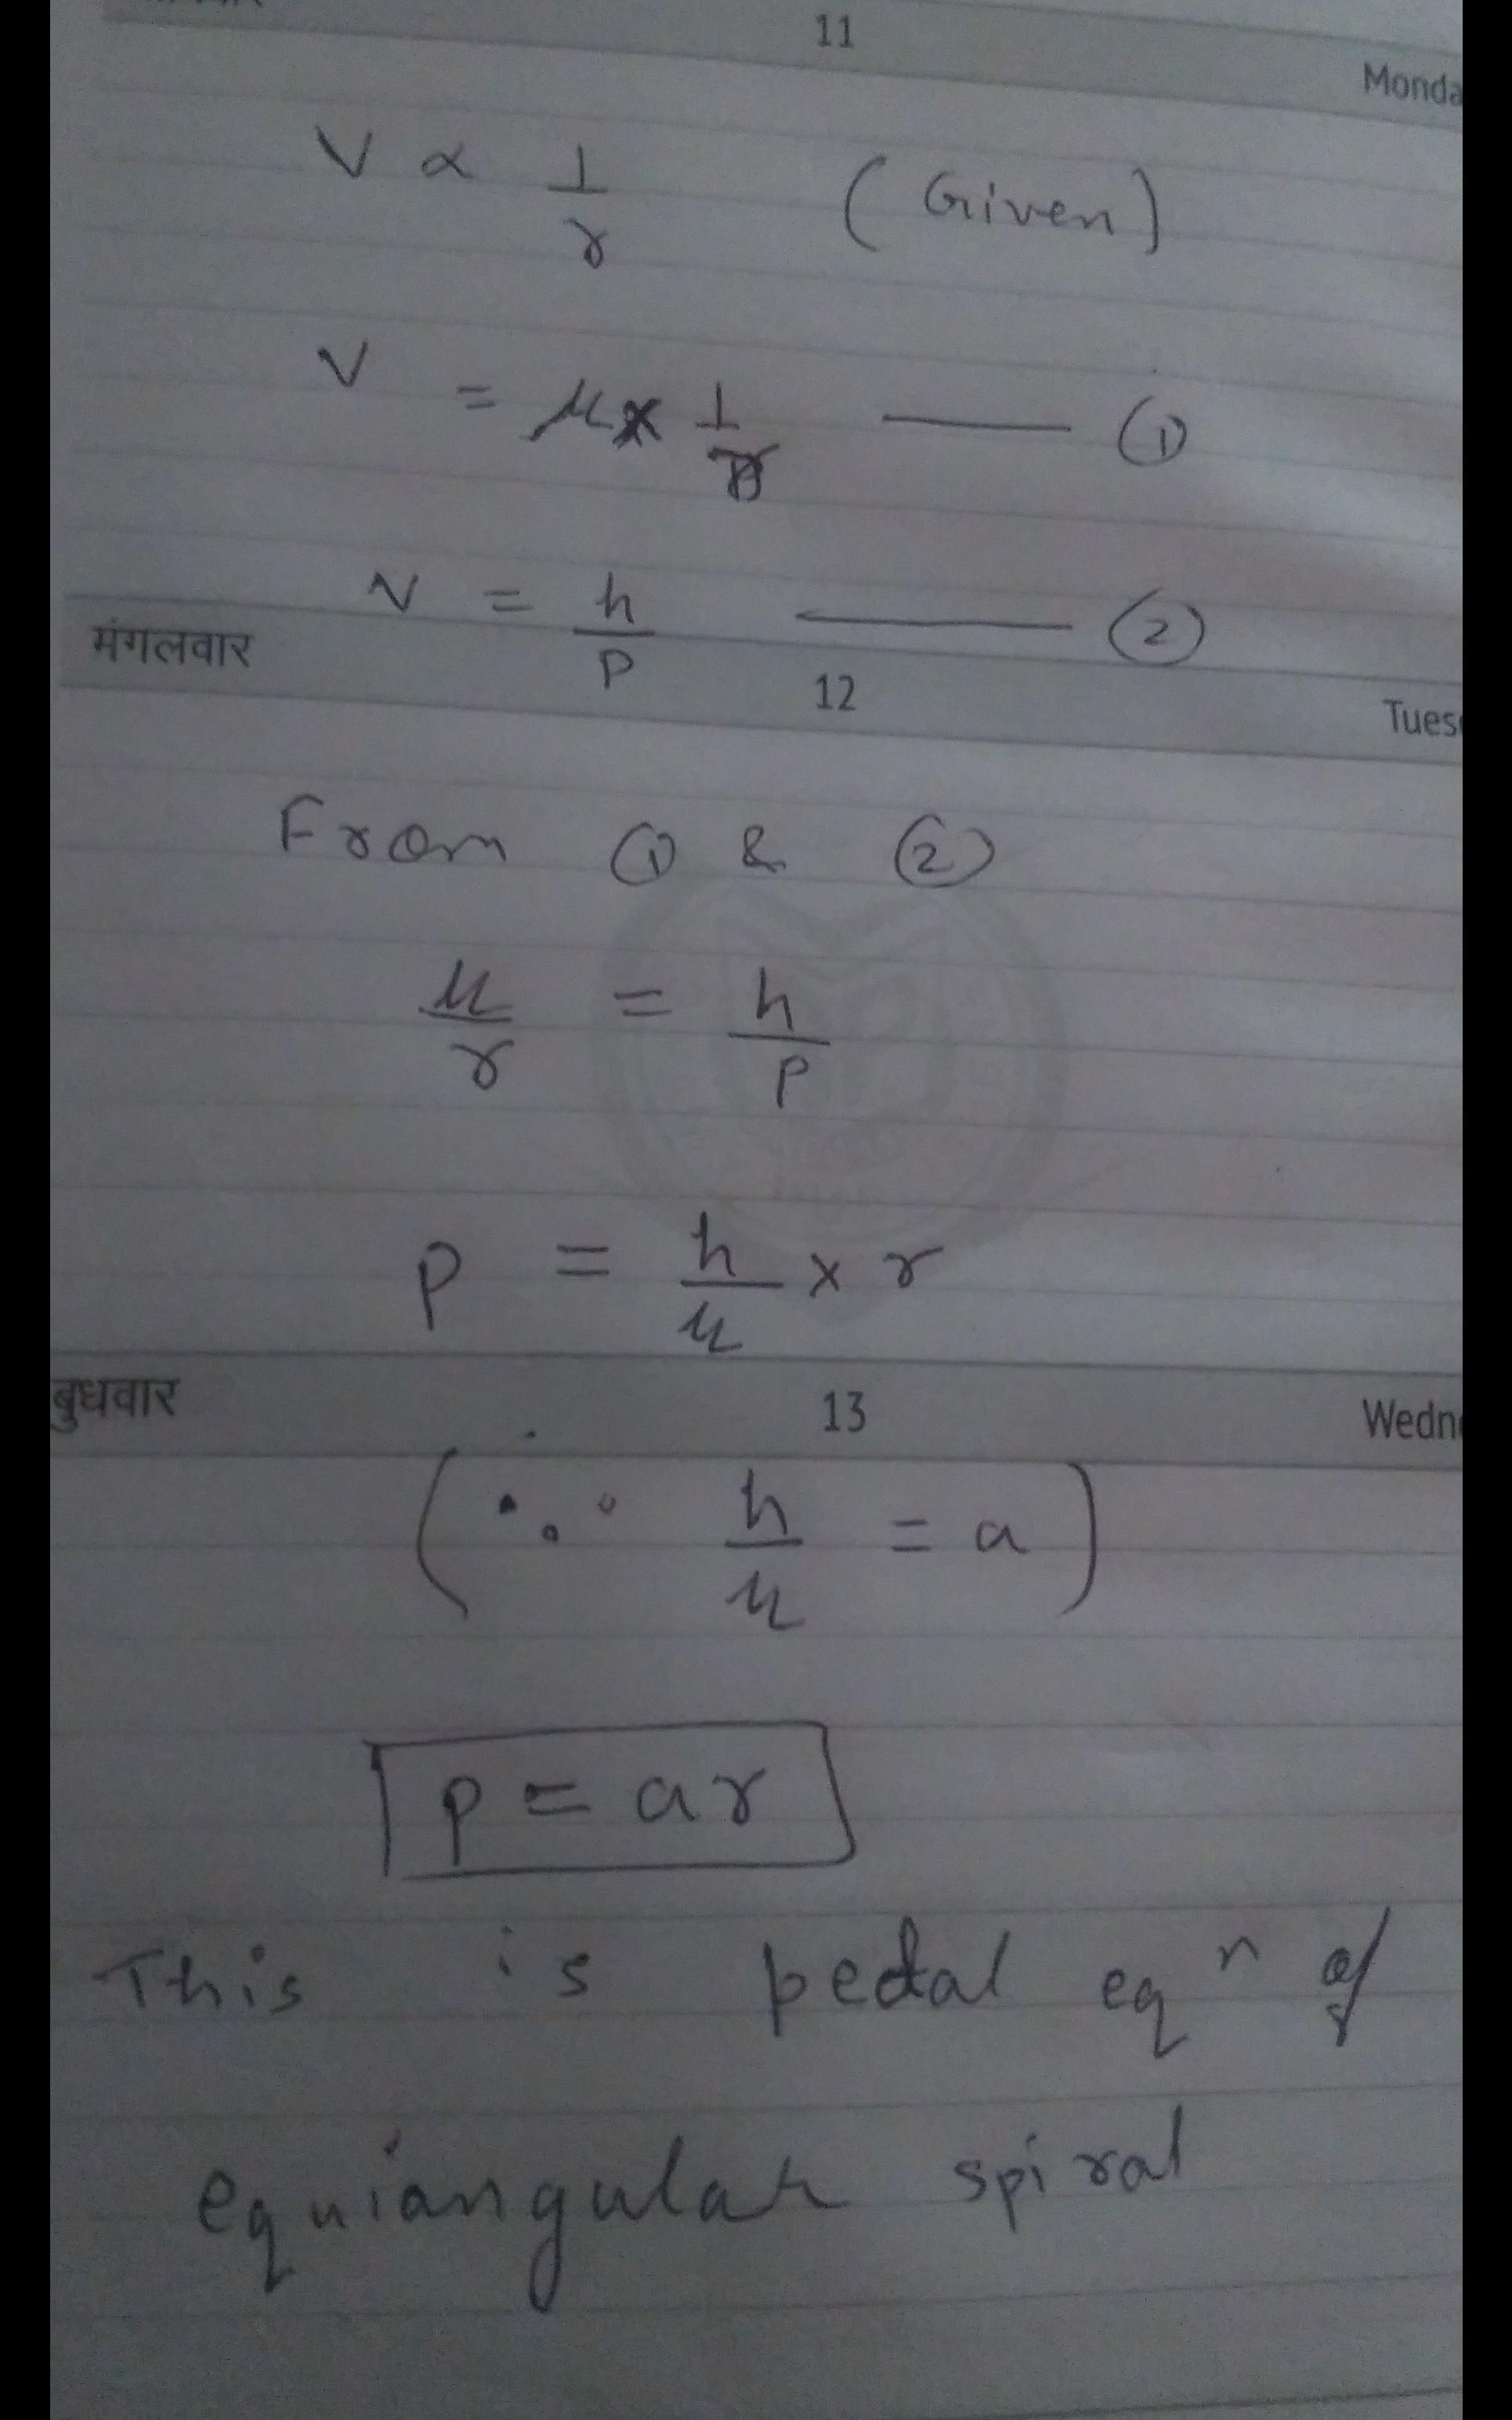 11
Monda
V ∝ 1/r (Given)
V = μ × 1/r —— ①
V = h/p —— ②
मंगलवार 12 Tues
From ① & ②
μ/r = h/p
p = h/μ × r
बुधवार 13 Wedn
(∵ h/μ = a)
p = ar
This is pedal eqⁿ of
equiangular spiral